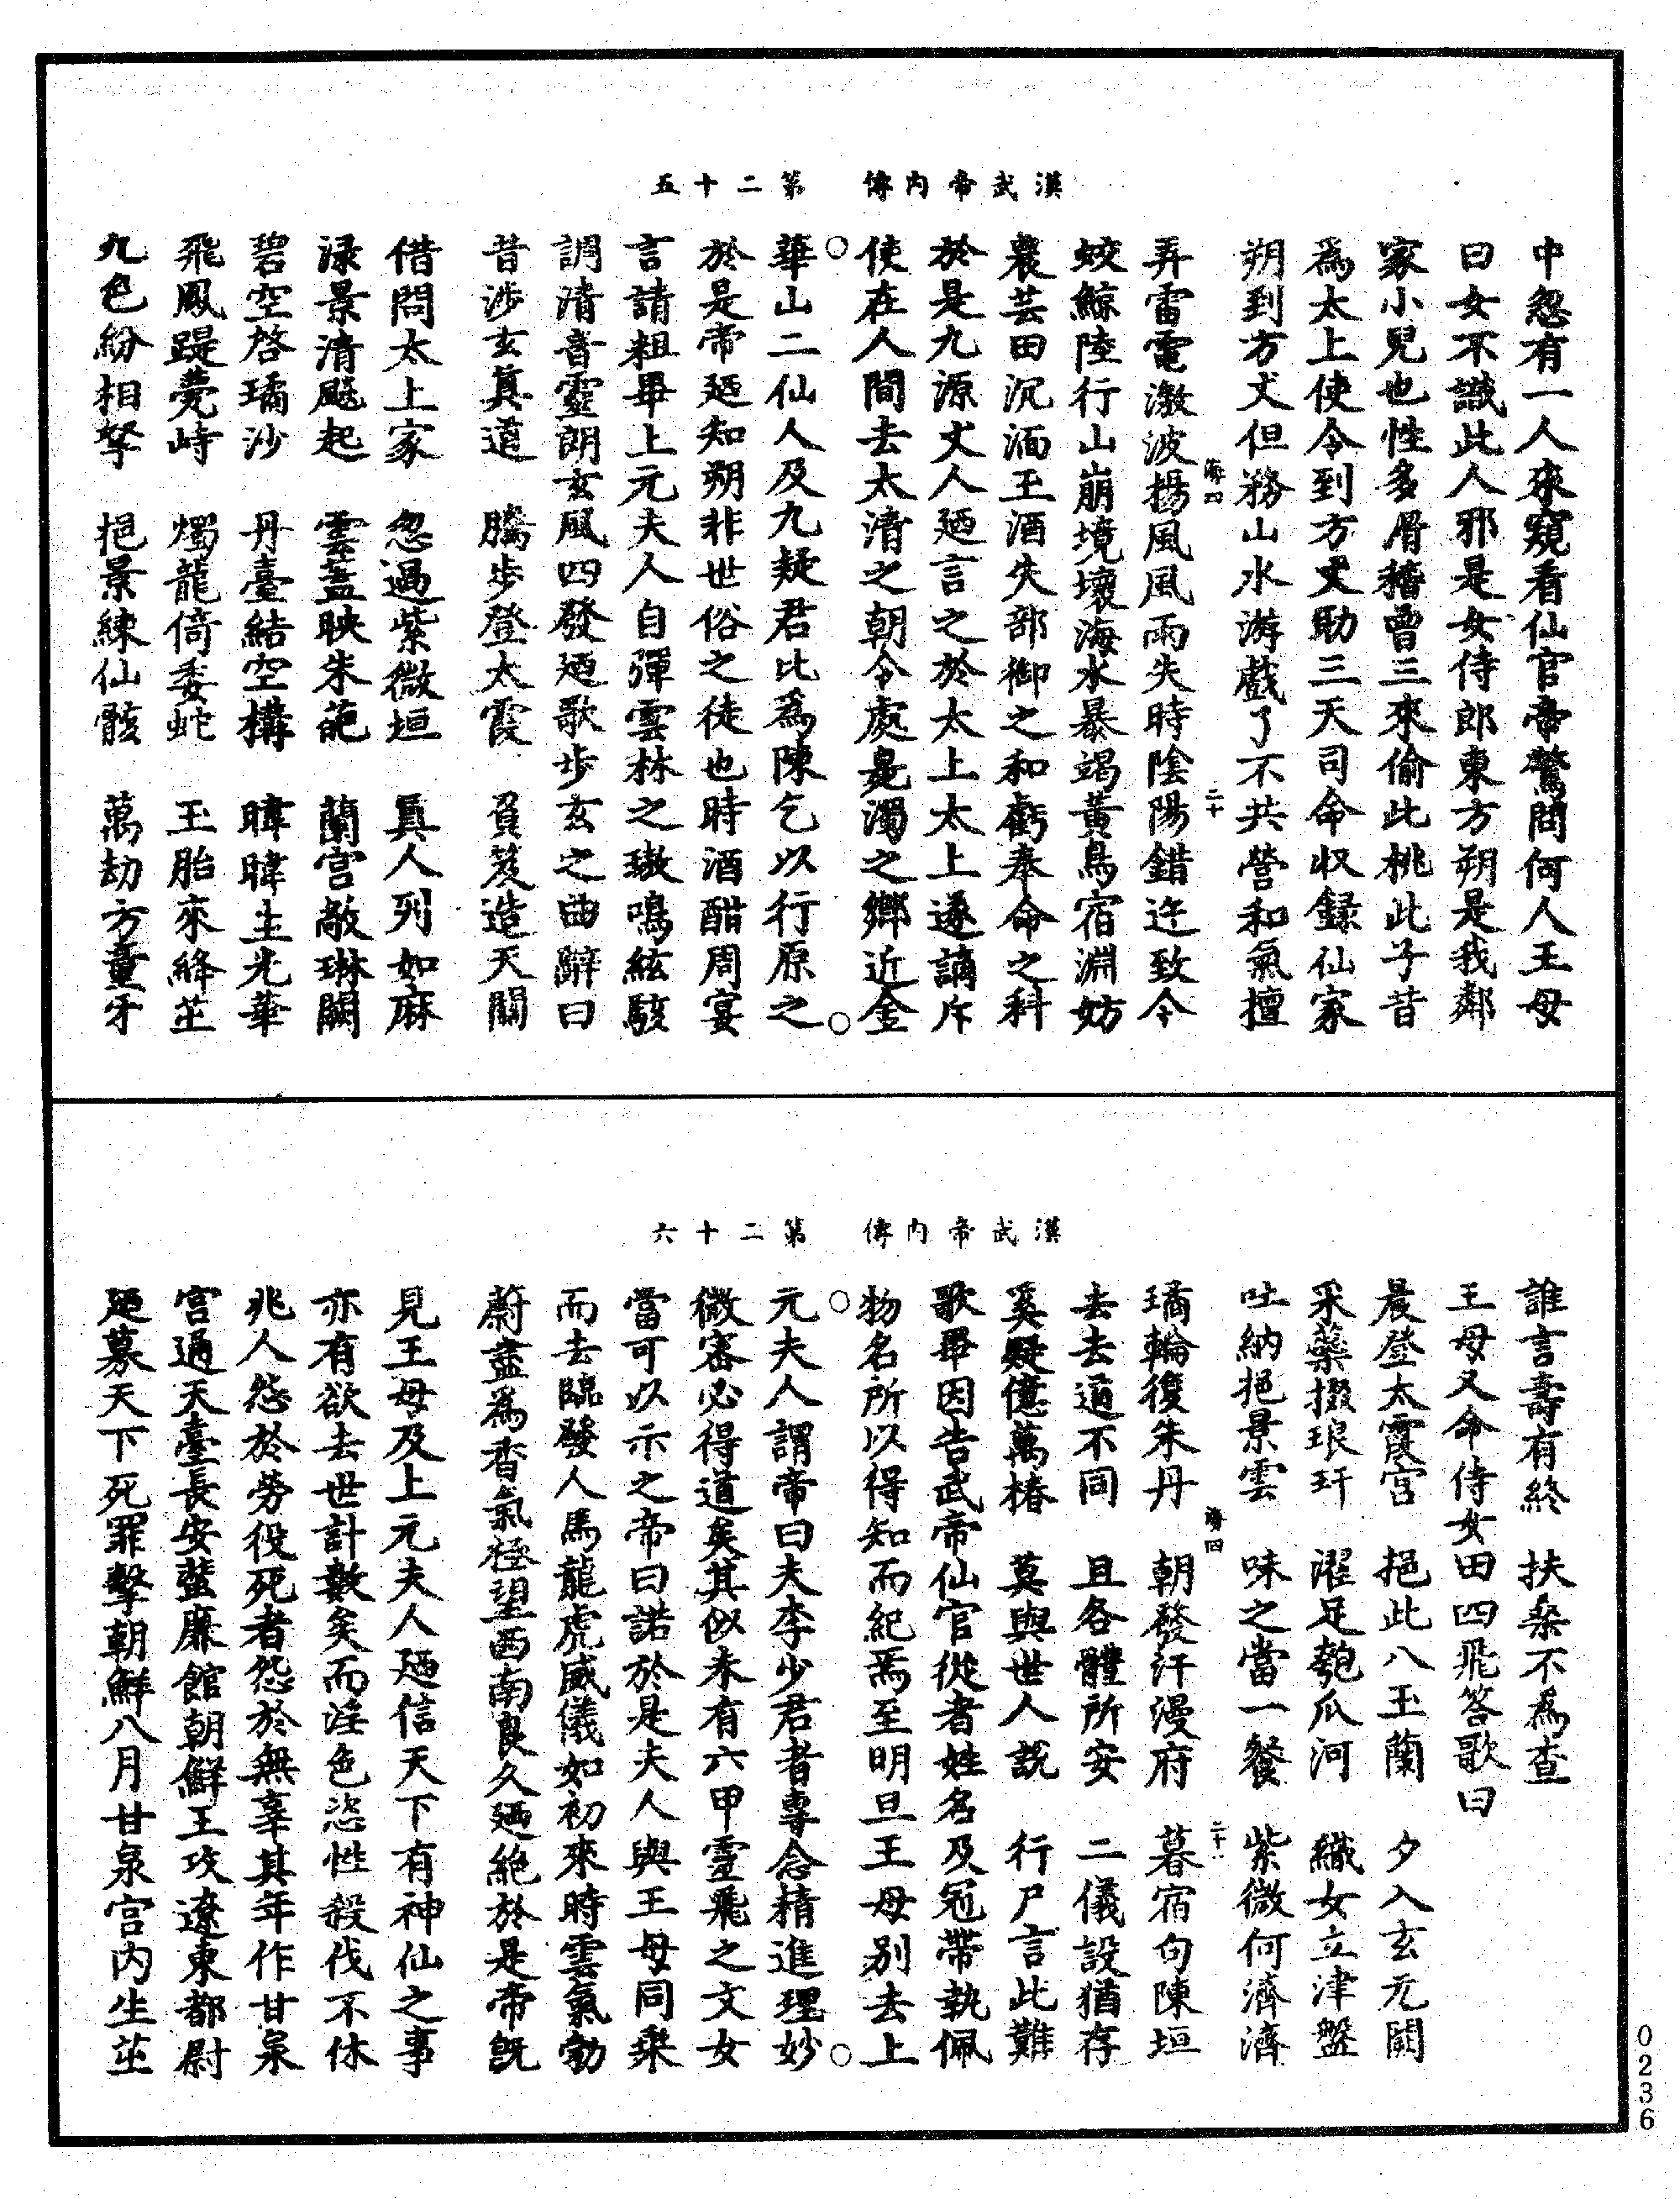 漢武帝内傳　第二十五
中忽有一人來窺看仙官帝驚問何人王母
曰女不識此人邪是女侍郎東方朔是我鄰
家小兒也性多滑稽曾三來偷此桃此子昔
爲太上使令到方丈助三天司命収録仙家
朔到方丈但務山水游戲了不共營和氣擅
海四　二十
弄雷電激波揚風風雨失時陰陽錯迕致令
蛟鯨陸行山崩境壞海水暴竭黃鳥宿淵妨
農芸田沉湎玉酒失部御之和虧奉命之科
於是九源丈人廼言之於太上太上遂謫斥
使在人間去太清之朝令處是濁之鄉近金
華山二仙人及九疑君比爲陳乞以行原之
於是帝廼知朔非世俗之徒也時酒酣周宴
言請粗畢上元夫人自彈雲林之璈鳴絃駭
調清音靈朗玄風四發廼歌步玄之曲辭曰
昔涉玄眞道　騰步登太霞　負笈造天關
借問太上家　忽過紫微垣　眞人列如麻
渌景清飈起　雲盖映朱葩　蘭宮敞琳闕
碧空啓璚沙　丹臺結空構　暐暐生光華
飛鳳踶甍峙　燭龍倚委蛇　玉胎來絳芝
九色紛相拏　挹景練仙骸　萬劫方童牙
漢武帝内傳　第二十六
誰言壽有終　扶桑不爲查
王母又命侍女田四飛答歌曰
晨登太霞宮　挹此八玉蘭　夕入玄元闕
采藥掇琅玕　濯足匏瓜河　織女立津盤
吐納挹景雲　味之當一餐　紫微何濟濟
海四　二十一
璚輪復朱丹　朝發汗漫府　暮宿句陳垣
去去道不同　且各體所安　二儀設猶存
奚疑億萬椿　莫與世人說　行尸言此難
歌畢因告武帝仙官從者姓名及冠帶執佩
物名所以得知而紀焉至明旦王母別去上
元夫人謂帝曰夫李少君者專念精進理妙
微密必得道矣其似未有六甲靈飛之文女
當可以示之帝曰諾於是夫人與王母同乘
而去臨發人馬龍虎威儀如初來時雲氣勃
蔚盡爲香氣極望西南良久廼絶於是帝旣
見王母及上元夫人廼信天下有神仙之事
亦有欲去世計數矣而淫色恣性殺伐不休
兆人怨於勞役死者怨於無辜其年作甘泉
宮通天臺長安蜚廉館朝鮮王攻遼東都尉
廼募天下死罪擊朝鮮八月甘泉宮内生芝
0236